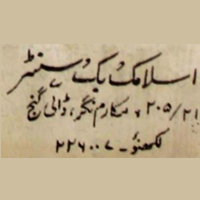 اسلامک بک سنٹر
۲۰۵/۲۱، مکارم نگر، ڈالی گنج
لکھنؤ۔ ۲۲۶۰۰۷